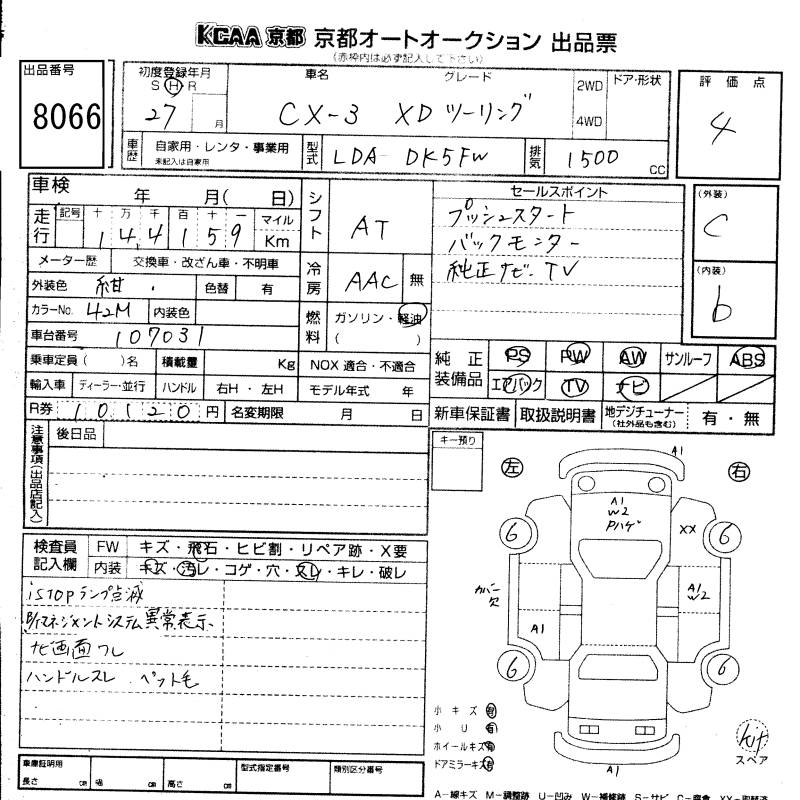 KCAA 京都 京都オートオークション 出品票
(赤枠内は必ず記入して下さい)
出品番号
8066
初度登録年月
S H R
27 月
車名 グレード
CX-3 XD ツーリング
2WD
4WD
ドア・形状
評価点
4
車歴
自家用・レンタ・事業用
未記入は自家用
型式
LDA-DK5FW
排気
1500 CC
車検 年 月( 日)
走行
記号 十 万 千 百 十 一
144159
マイル
Km
シフト
AT
セールスポイント
プッシュスタート
バックモニター
純正ナビ・TV
(外装)
C
(内装)
b
メーター歴 交換車・改ざん車・不明車
外装色 紺 色替 有
冷房
AAC 無
カラーNo. 42M 内装色
燃料
ガソリン・軽油
( )
車台番号 107031
乗車定員( )名 積載量 Kg NOX 適合・不適合
輸入車 ディーラー・並行 ハンドル 右H・左H モデル年式 年
R券 10120円 名変期限 月 日
純正装備品
PS PW AW サンルーフ ABS
エアバック TV ナビ
新車保証書 取扱説明書 地デジチューナー (社外品も含む) 有・無
注意事項(出品店記入)
後日品
キー預り
左 右
A1
A1
W2
Pハゲ
XX
6 6
カバー欠
A1
W2
A1
6 6
A1
検査員記入欄
FW キズ・飛石・ヒビ割・リペア跡・X要
内装 キズ・汚レ・コゲ・穴・スレ・キレ・破レ
iSTOPランプ点滅
B/Tマネジメントシステム異常表示
ナビ画面フレ
ハンドルスレ ペット毛
小キズ 有
小U 有
ホイールキズ 有
ドアミラーキズ 有
kit
スペア
車庫証明用
長さ cm 幅 cm 高さ cm
型式指定番号
類別区分番号
A-線キズ M-調整跡 U-凹み W-補修跡 S-サビ C-腐食 XX-取替済